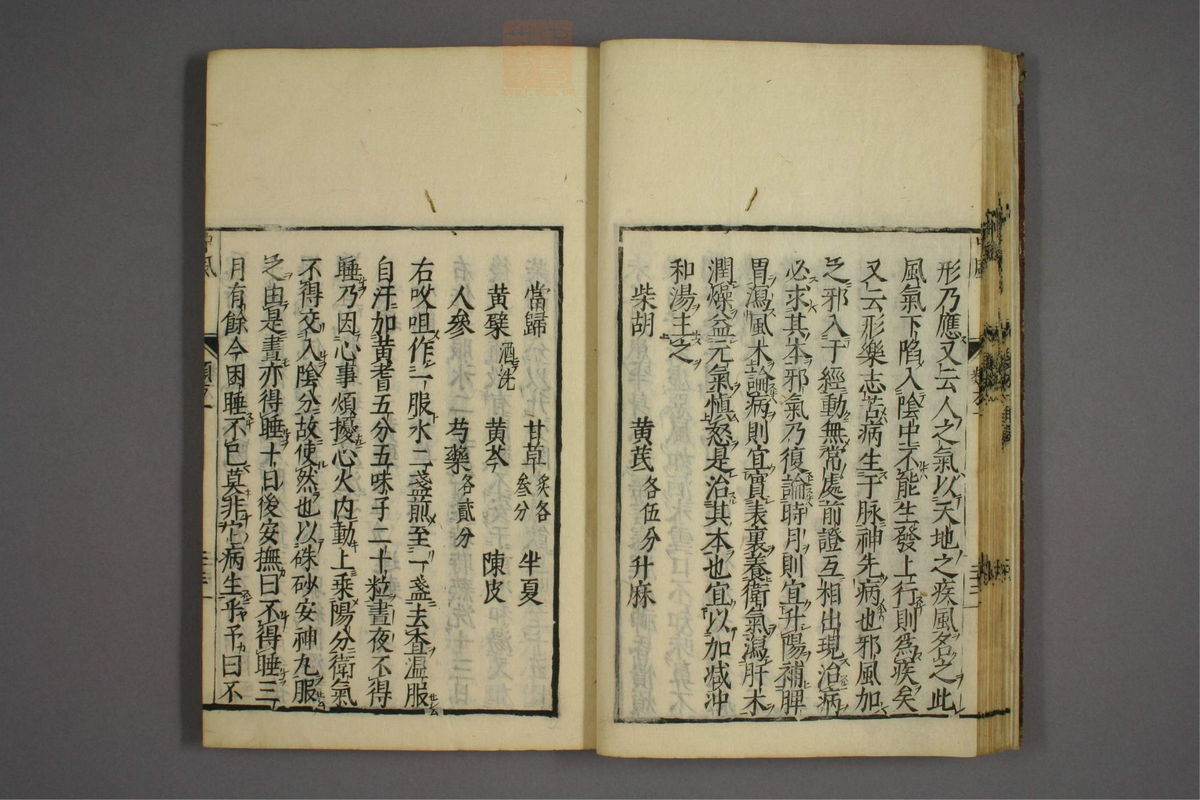 形乃應又云人之氣以天地之疾風名之此
風氣下陷入陰中不能生發上行則為疾矣
又云形樂志苦病生于脉神先病也邪風加
之邪入于經動無常處前證互相出現治病
必求其本邪氣乃復論時月則宜升陽補脾
胃瀉風木論病則宜實表裏養衛氣瀉肝木
潤燥益元氣慎怒是治其本也宜以加减冲
和湯主之
柴胡 黄芪各伍分 升麻
當歸 甘草炙各叁分 半夏
黄檗酒洗 黄芩 陳皮
人參 芍藥各貳分
右㕮咀作一服水二盞煎至一盞去渣温服
自汗加黄耆五分五味子二十粒晝夜不得
睡乃因心事煩擾心火内動上乗陽分衛氣
不得交入陰分故使然也以硃砂安神丸服
之由是晝亦得睡十日後安撫曰不得睡三
月有餘今因睡不已莫非它病生乎予曰不